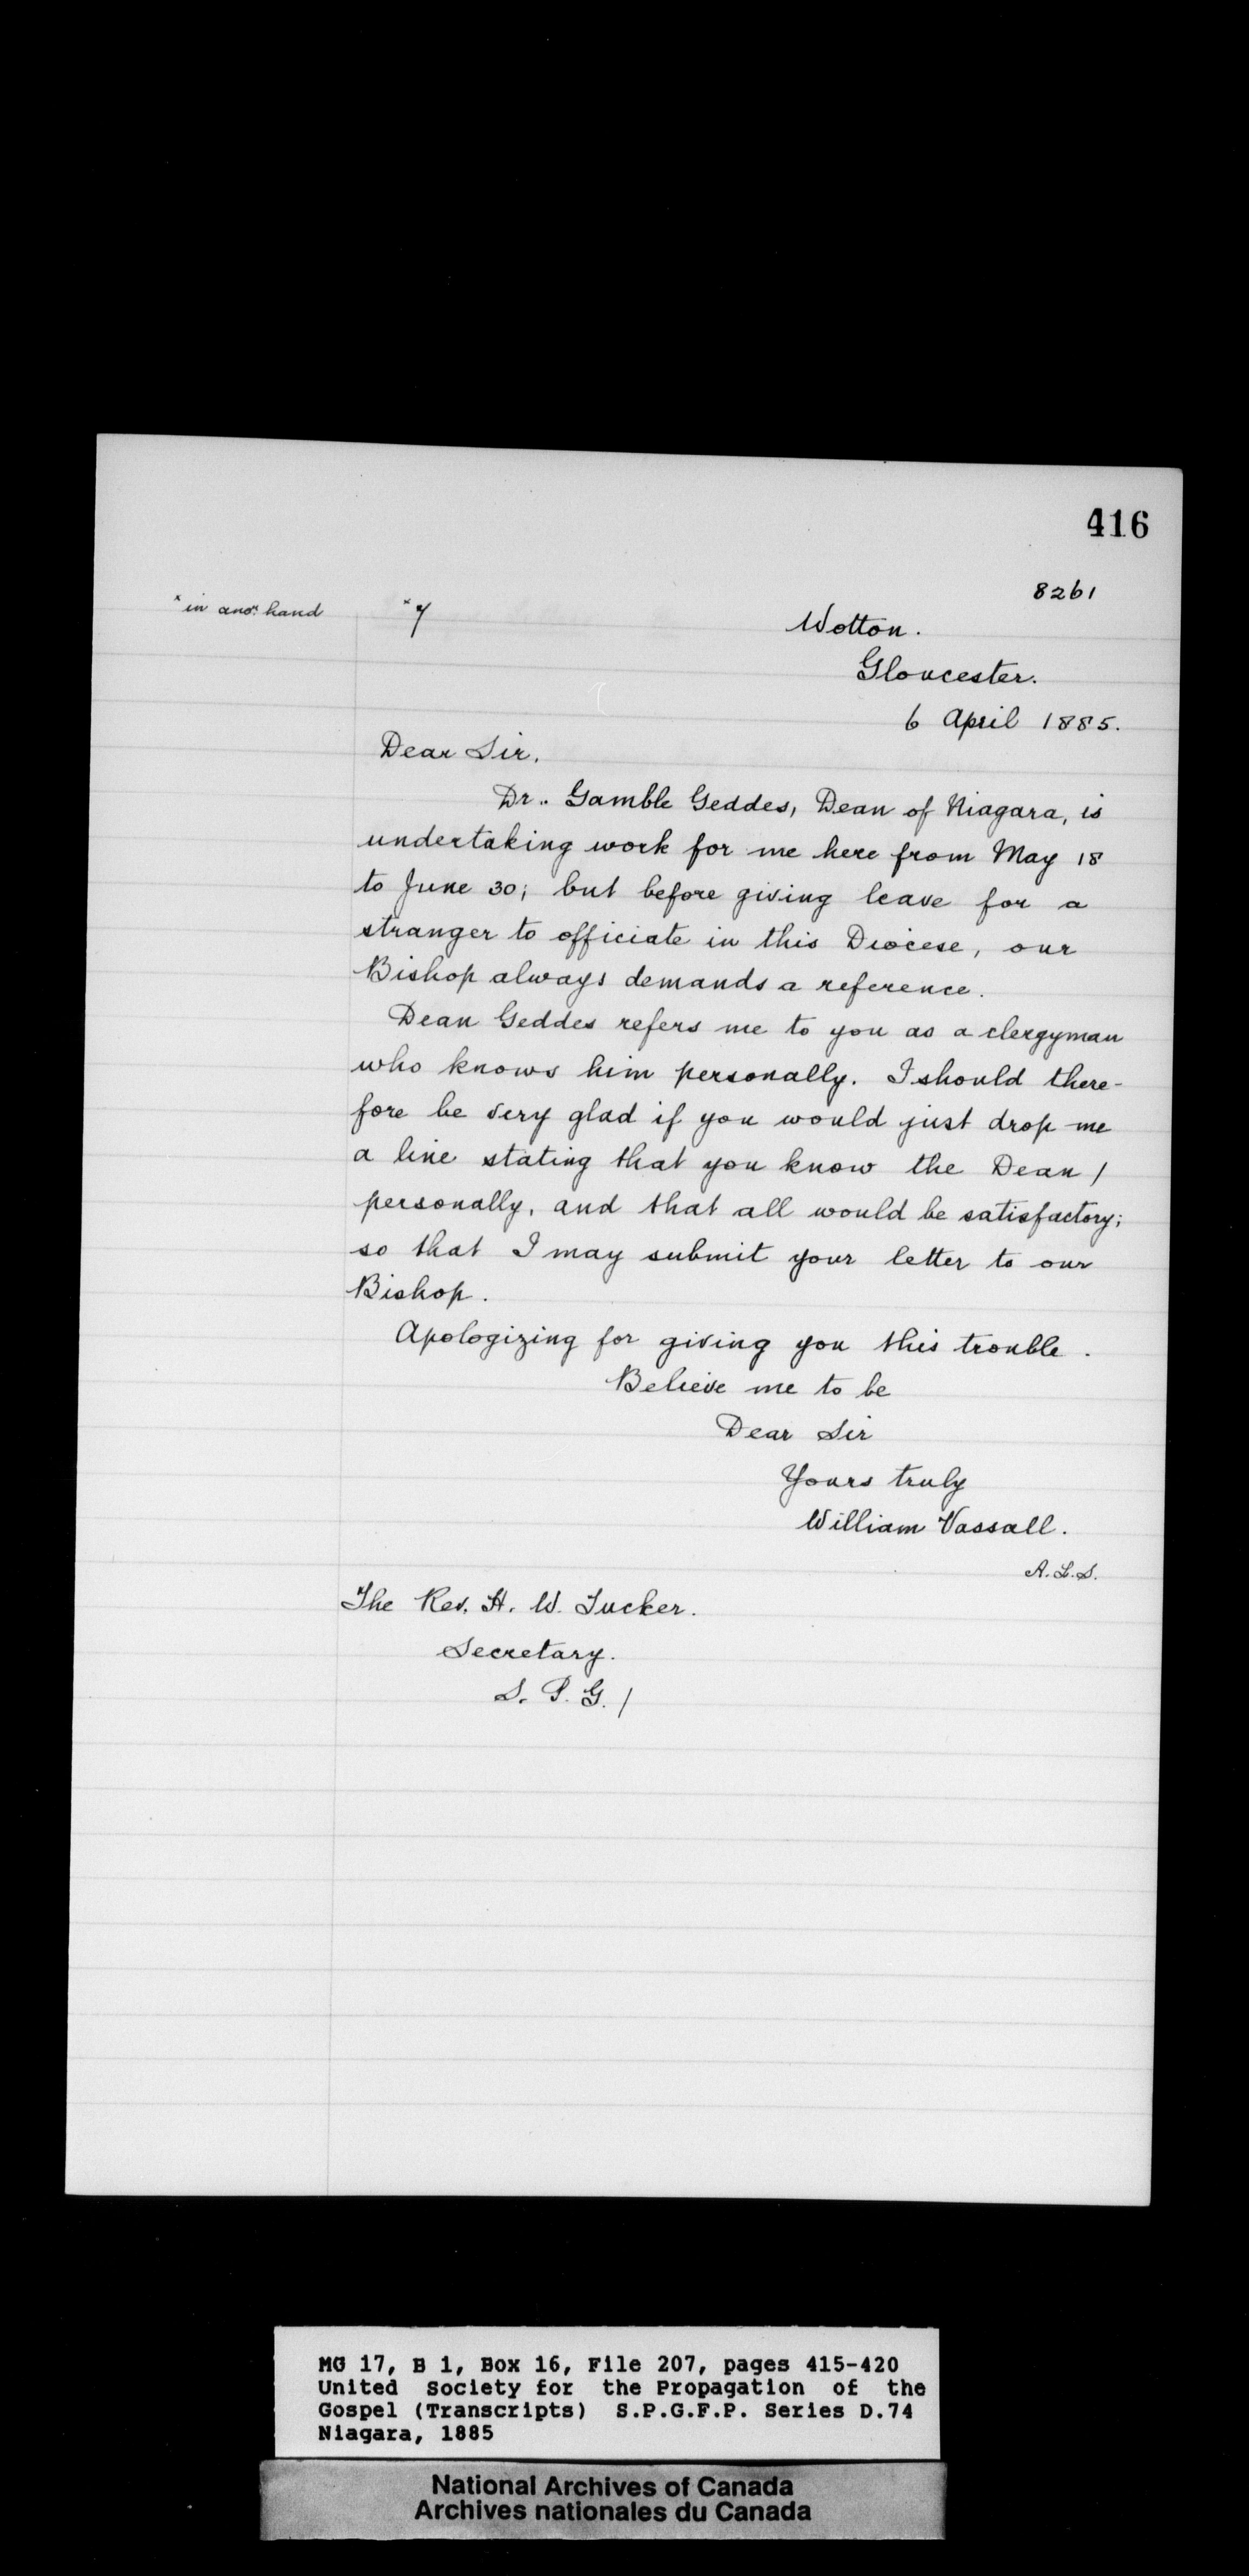 416
8261
* in anor. hand
*7
Wotton.
Gloucester.
6 April 1885.
Dear Sir.
Dr.. Gamble Geddes, Dean of Niagara, is
undertaking work for me here from May 18
to June 30; but before giving leave for a
stranger to officiate in this Diocese, our
Bishop always demands a reference.
Dean Geddes refers me to you as a clergyman
who knows him personally. I should there-
fore be very glad if you would just drop me
a line stating that you know the Dean /
personally, and that all would be satisfactory;
so that I may submit your letter to our
Bishop.
Apologizing for giving you this trouble.
Believe me to be
Dear Sir
Yours truly
William Vassall.
A.L.S.
The Rev. H. W. Tucker.
Secretary.
S. P. G. /
MG 17, B 1, Box 16, File 207, pages 415-420
United Society for the Propagation of the
Gospel (Transcripts) S.P.G.F.P. Series D.74
Niagara, 1885
National Archives of Canada
Archives nationales du Canada